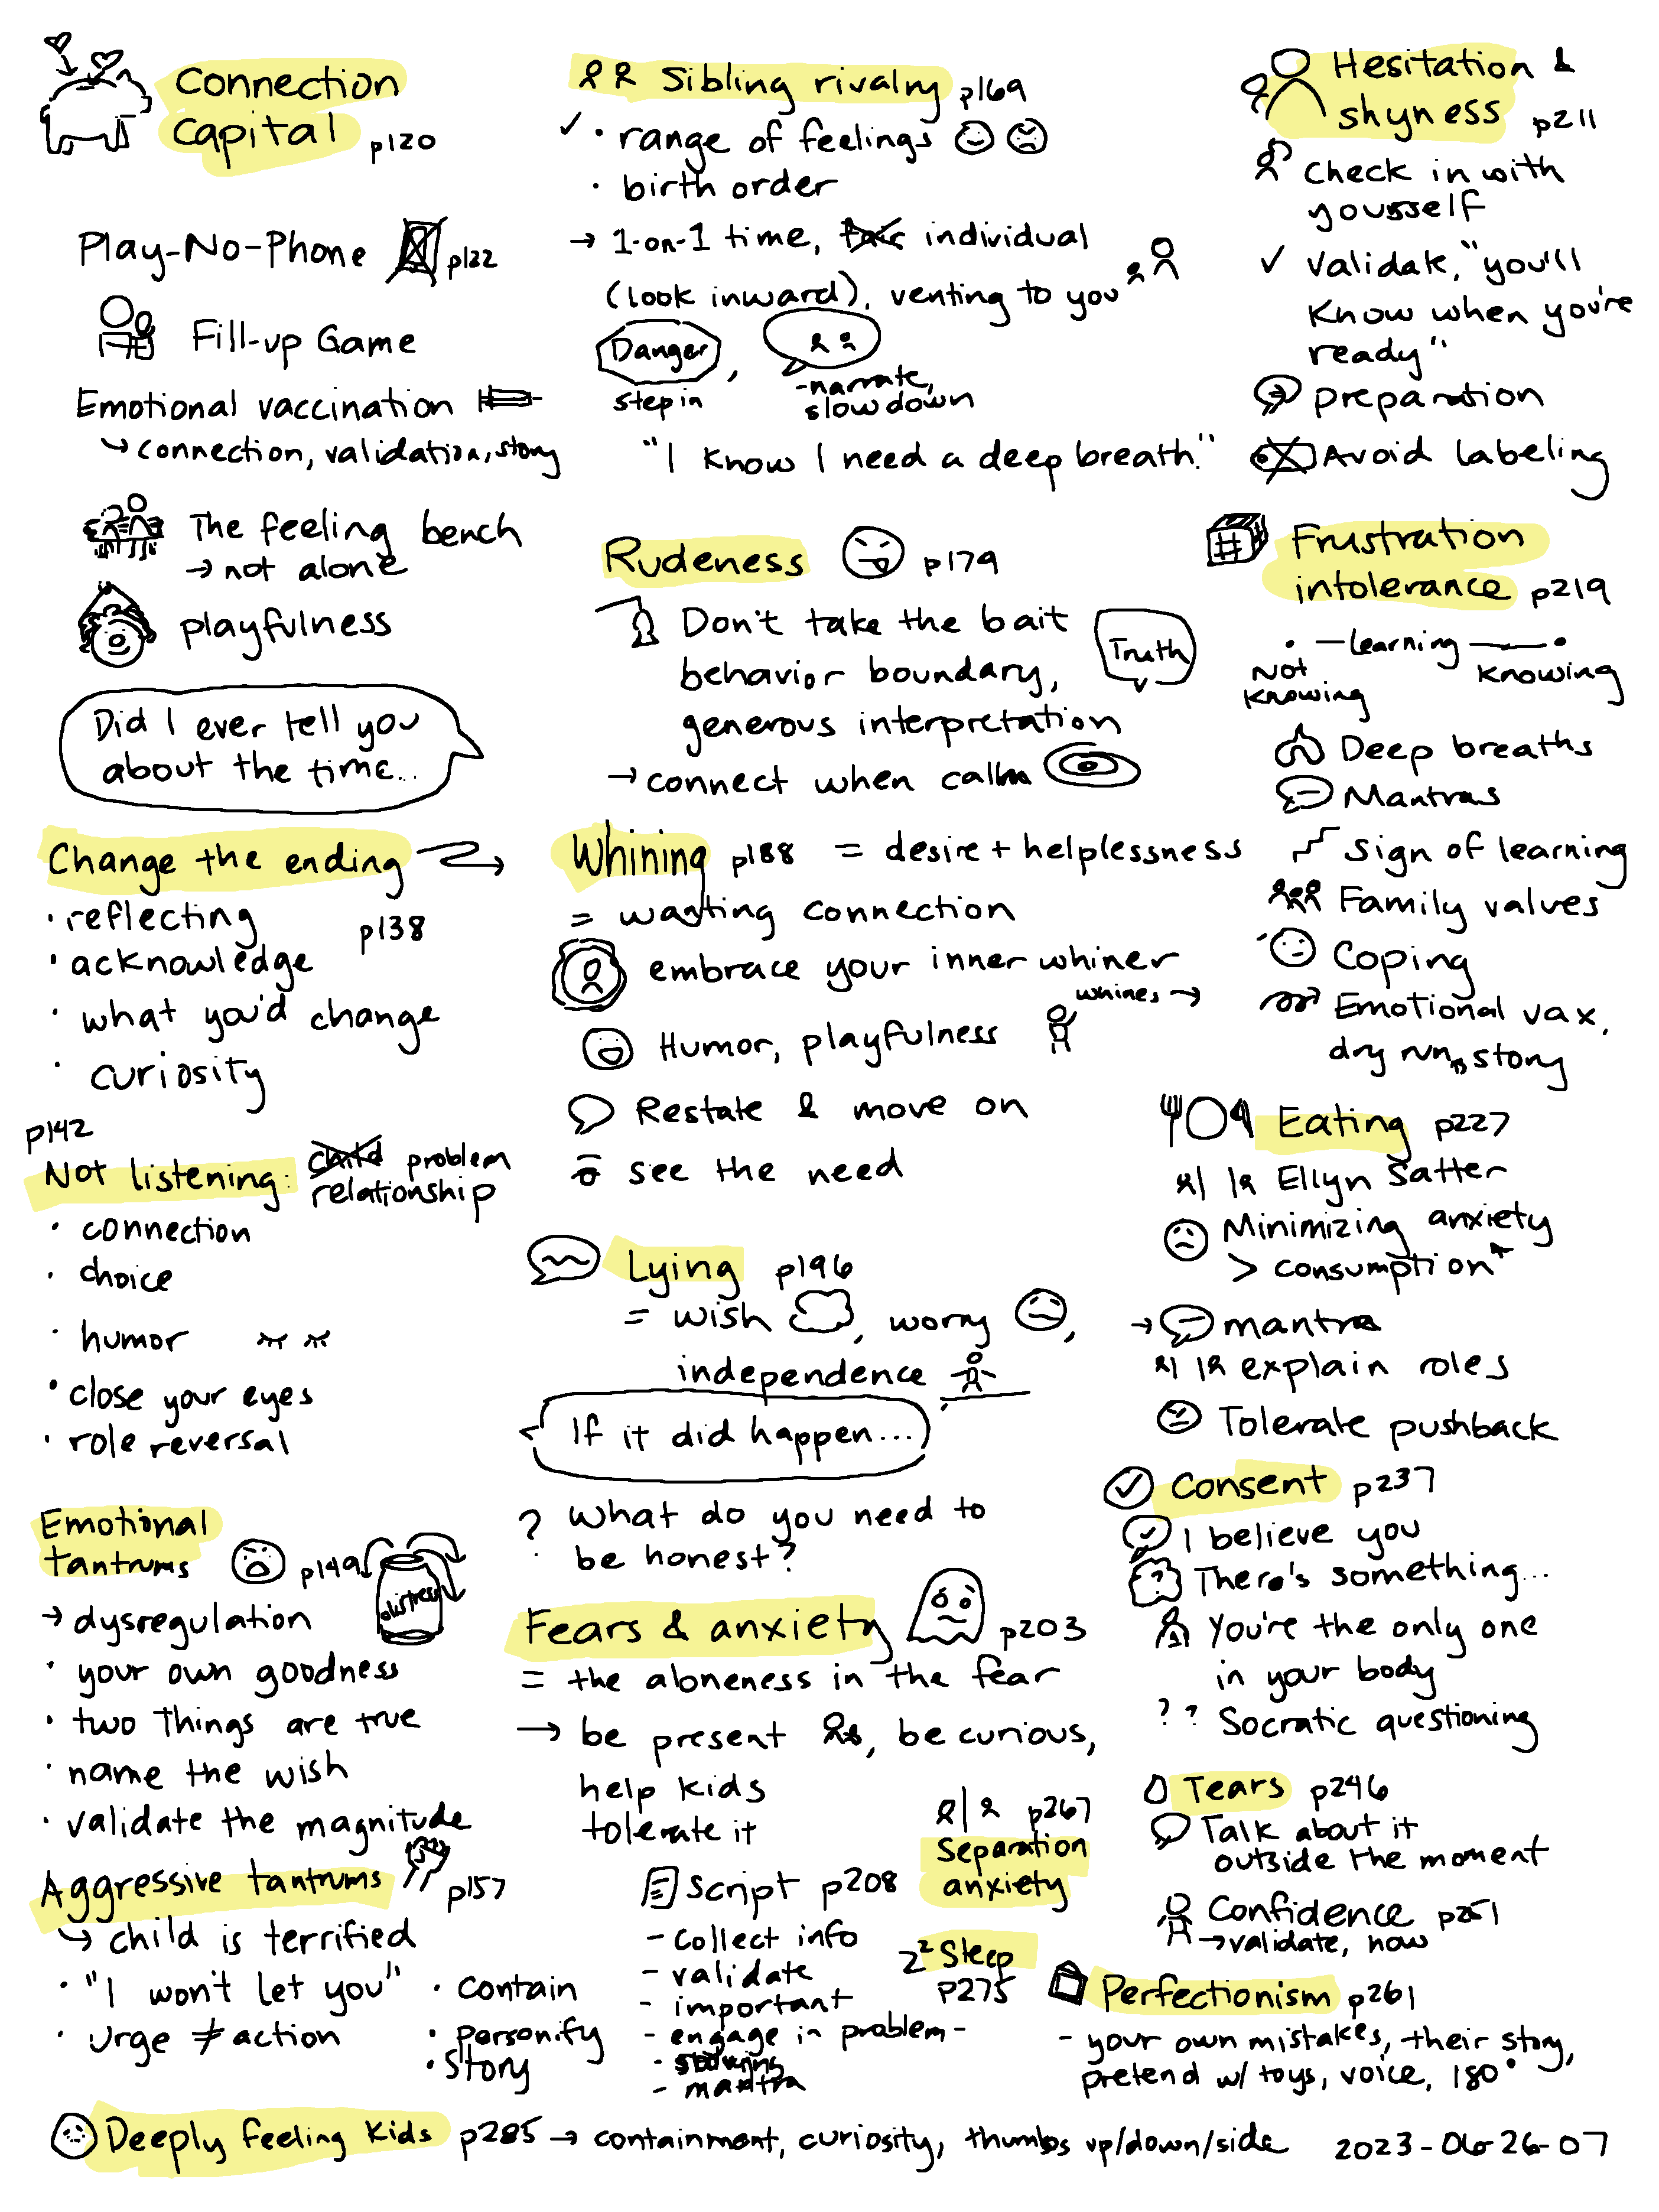 Connection
Capital p120
Play-No-Phone p122
Fill-up Game
Emotional vaccination
connection, validation, story
The feeling bench
→ not alone
playfulness
Did I ever tell you
about the time...
Change the ending
• reflecting p138
• acknowledge
• what you'd change
• curiosity
p142
Not listening: child problem
relationship
• connection
• choice
• humor
• close your eyes
• role reversal
Emotional
tantrums p149
distress
→ dysregulation
• your own goodness
• two things are true
• name the wish
• validate the magnitude
Aggressive tantrums p157
↳ child is terrified
• "I won't let you"
• urge ≠ action
• contain
• personify
• story
Sibling rivalry p169
✓ • range of feelings
• birth order
→ 1-on-1 time, fair individual
(look inward), venting to you
Danger
step in
- narrate,
slow down
"I know I need a deep breath."
Rudeness p179
Don't take the bait
Truth
behavior boundary,
generous interpretation
→ connect when calm
Whining p188 = desire + helplessness
= wanting connection
embrace your inner whiner
whines →
Humor, playfulness
Restate & move on
see the need
Lying p196
= wish, worry,
independence
If it did happen...
? What do you need to
be honest?
Fears & anxiety p203
= the aloneness in the fear
→ be present, be curious,
help kids
tolerate it
Script p208
- collect info
- validate
- important
- engage in problem-
- solving
- mantra
p267
Separation
anxiety
Zz Sleep
p275
Hesitation &
shyness p211
Check in with
yousself
✓ Validate, "you'll
know when you're
ready"
preparation
Avoid labeling
Frustration
intolerance p219
• — learning — •
Not
knowing
knowing
Deep breaths
Mantras
Sign of learning
Family values
Coping
Emotional vax,
dry run, story
Eating p227
Ellyn Satter
Minimizing anxiety
> consumption
→ mantra
explain roles
Tolerate pushback
Consent p237
I believe you
There's something...
You're the only one
in your body
? ? Socratic questioning
Tears p246
Talk about it
outside the moment
Confidence p251
→ validate, how
Perfectionism p261
- your own mistakes, their story,
pretend w/ toys, voice, 180°
Deeply Feeling Kids p285 → containment, curiosity, thumbs up/down/side 2023-06-26-07